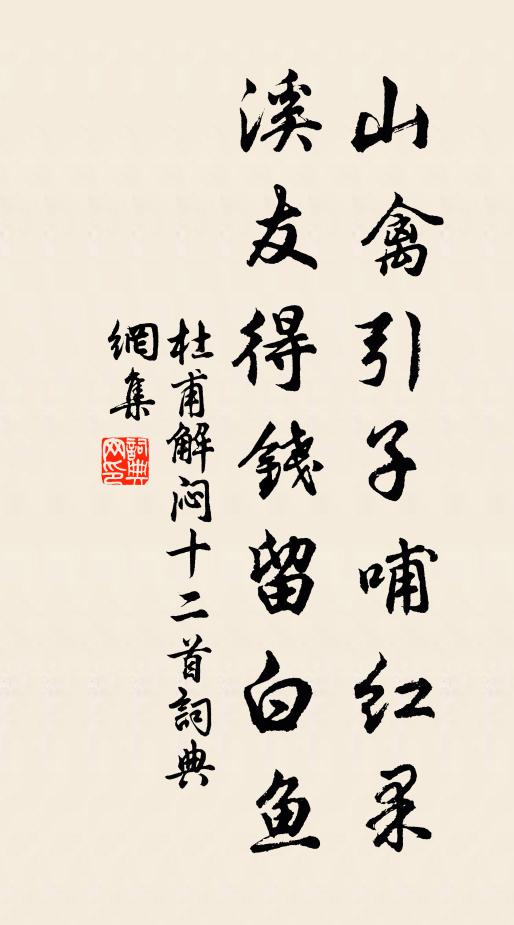 山禽引子哺红果
溪友得錢留白鱼
杜甫解闷十二首詞典
網集
詞典网印